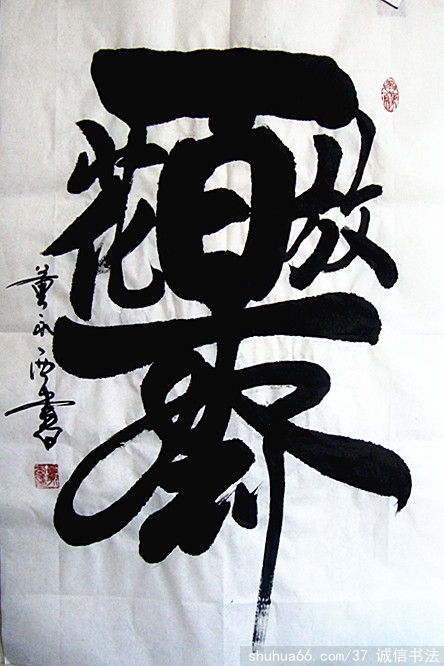 百花齊放
永西書
shuhua66.com/37 诚信书法